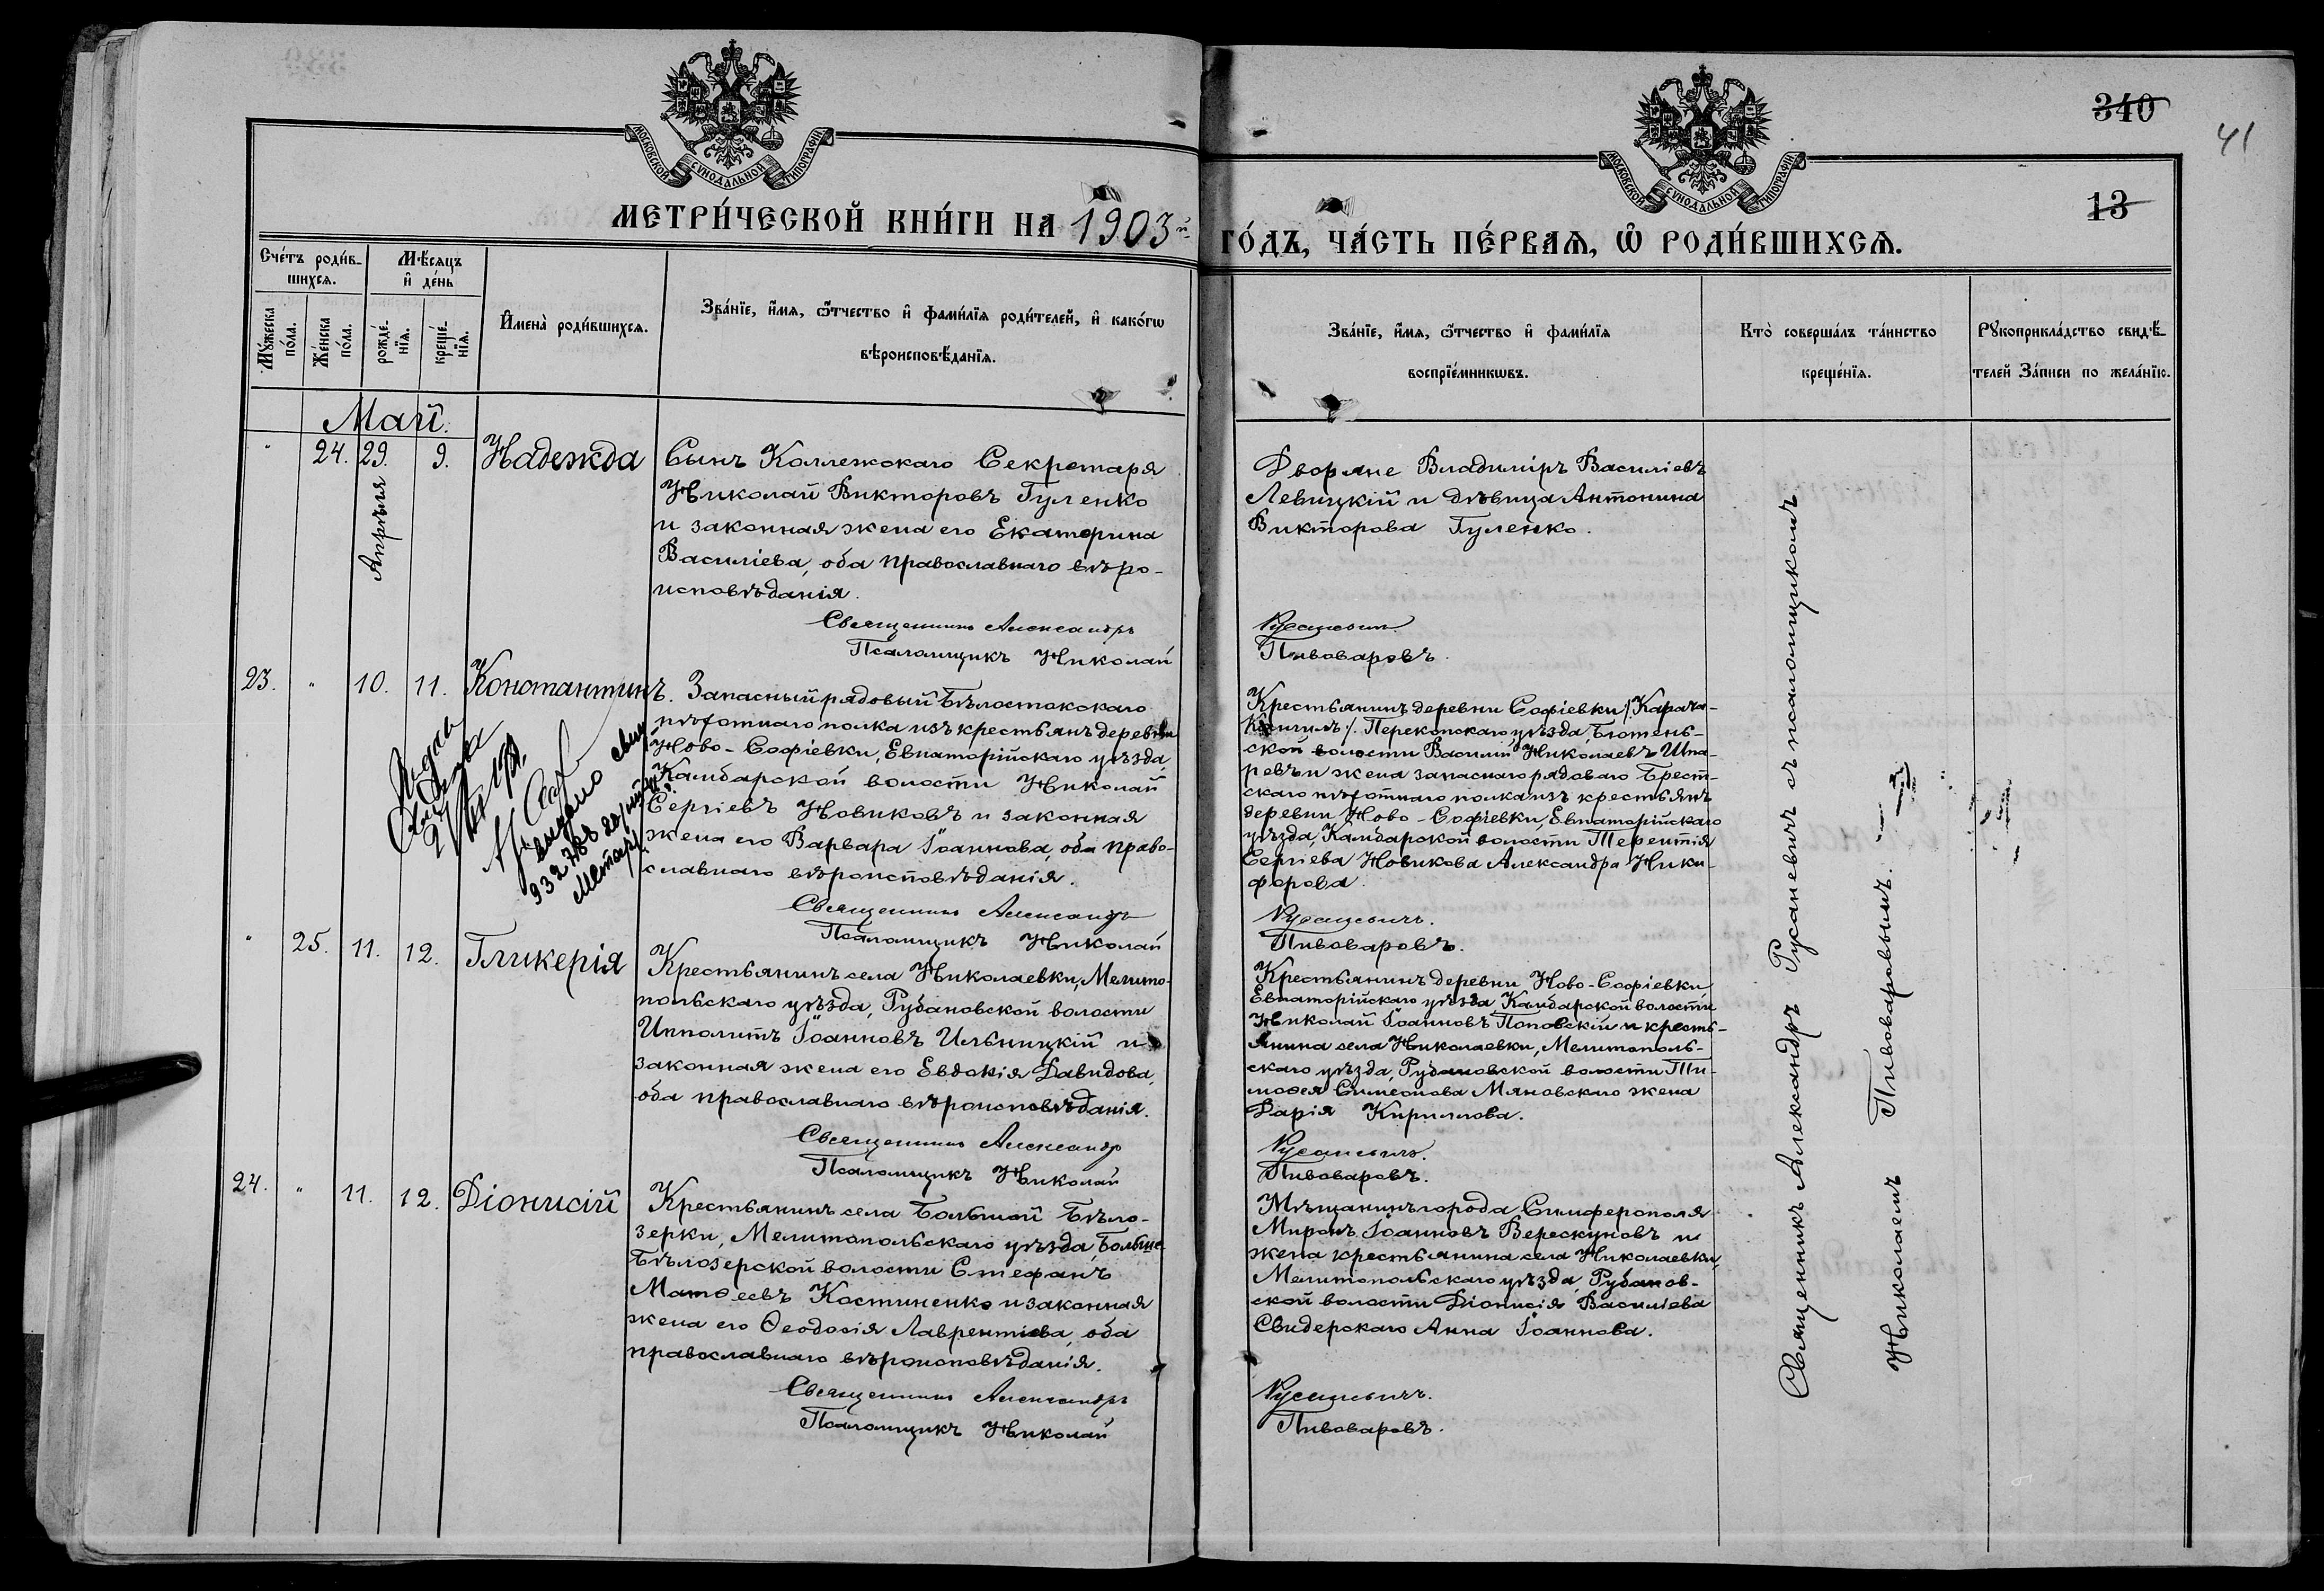 340
41
13
МОСКОВСКОЙ СѴНОДАЛЬНОЙ ТИПОГРАФІИ
МОСКОВСКОЙ СѴНОДАЛЬНОЙ ТИПОГРАФІИ
МЕТРИ́ЧЕСКОЙ КНИ́ГИ НА 1903й
ГО́ДЪ, ЧА́СТЬ ПЕ́РВАѦ, Ѿ РОДИ́ВШИХСѦ.
Сче́тъ роди́в-
шихсѧ.
Мѣ́сѧцъ
и҆ де́нь
Мꙋ́жеска
по́ла.
Же́нска
по́ла.
рожде́-
нїѧ.
креще́-
нїѧ.
И҆мена̀ роди́вшихсѧ.
Зва́нїе, и҆́мѧ, ѻ҆́тчество и҆ фами́лїѧ роди́телей, и҆ како́гѡ
вѣроисповѣ́данїѧ.
Зва́нїе, и҆́мѧ, ѻ҆́тчество и҆ фами́лїѧ
воспрїе́мникѡвъ.
Кто̀ соверша́лъ та́инство
креще́нїѧ.
Рꙋкоприкла́дство свидѣ́-
телей За́писи по жела́нїю.
Май.
" 24. 29. 9. Надежда
Апрѣля
Сынъ Коллежскаго Секретаря
Николай Викторовъ Гуленко
и законная жена его Екатерина
Василіева, оба православнаго вѣро-
исповѣданія.
Священникъ Александръ
Псаломщикъ Николай
Дворяне Владиміръ Василіевъ
Левицкій и дѣвица Антонина
Викторова Гуленко.
Русаневичъ.
Пивоваровъ.
23. " 10. 11. Константинъ.
Запасный рядовый Бѣлостокскаго
пѣхотнаго полка изъ крестьянъ деревни
Ново-Софіевки, Евпаторійскаго уѣзда,
Камбарской волости Николай
Сергіевъ Новиковъ и законная
жена его Варвара Іоаннова, оба право-
славнаго вѣроисповѣданія.
Священникъ Александръ
Псаломщикъ Николай
выдано
Крестьянинъ деревни Софіевки /Карача-
Перекопскаго уѣзда,
ской волости Василій Николаевъ
и жена запаснаго рядоваго Брест-
скаго пѣхотнаго полка изъ крестьянъ
деревни Ново-Софіевки, Евпаторійскаго
уѣзда, Камбарской волости Терентія
Сергіева Новикова Александра Ники-
форова.
Русаневичъ.
Пивоваровъ.
" 25. 11. 12. Гликерія
Крестьянинъ села Николаевки, Мелито-
польскаго уѣзда, Рубановской волости
Ипполитъ Іоанновъ Ильницкій и
законная жена его Евдокія Давидова,
оба православнаго вѣроисповѣданія.
Священникъ Александръ
Псаломщикъ Николай
Крестьянинъ деревни Ново-Софіевки
Евпаторійскаго уѣзда Камбарской волости
Николай Іоанновъ Поповскій и кресть-
янина села Николаевки, Мелитополь-
скаго уѣзда, Рубановской волости Ти-
моѳея Симеонова Мяновскаго жена
Дарія Кириллова.
Русаневичъ.
Пивоваровъ.
24. " 11. 12. Діонисій
Крестьянинъ села Большой Бѣло-
зерки, Мелитопольскаго уѣзда, Больше-
Бѣлозерской волости Стефанъ
Матѳеевъ Костиненко и законная
жена его Ѳеодосія Лаврентіева, оба
православнаго вѣроисповѣданія.
Священникъ Александръ
Псаломщикъ Николай
Мѣщанинъ города Симферополя
Миронъ Іоанновъ Верескуновъ и
жена крестьянина села Николаевки,
Мелитопольскаго уѣзда, Рубанов-
ской волости Діонисія Василіева
Свидерскаго Анна Іоаннова.
Русаневичъ.
Пивоваровъ.
Священникъ Александръ Русаневичъ съ псаломщикомъ
Николаемъ Пивоваровымъ.